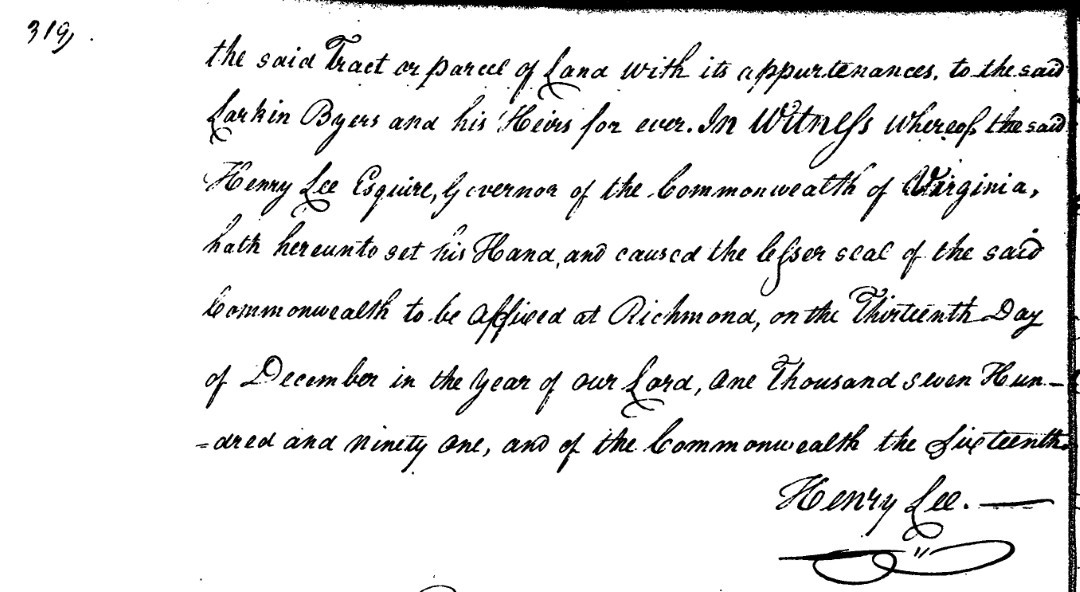 319,
the said Tract or parcel of Land with its appurtenances, to the said
Larkin Byers and his Heirs for ever. In Witness whereof, the said
Henry Lee Esquire, Governor of the Commonwealth of Virginia,
hath hereunto set his Hand, and caused the lesser seal of the said
Commonwealth to be affixed at Richmond, on the Thirteenth Day
of December in the year of our Lord, One Thousand seven Hun-
-dred and ninety one, and of the Commonwealth the Sixteenth.
Henry Lee.